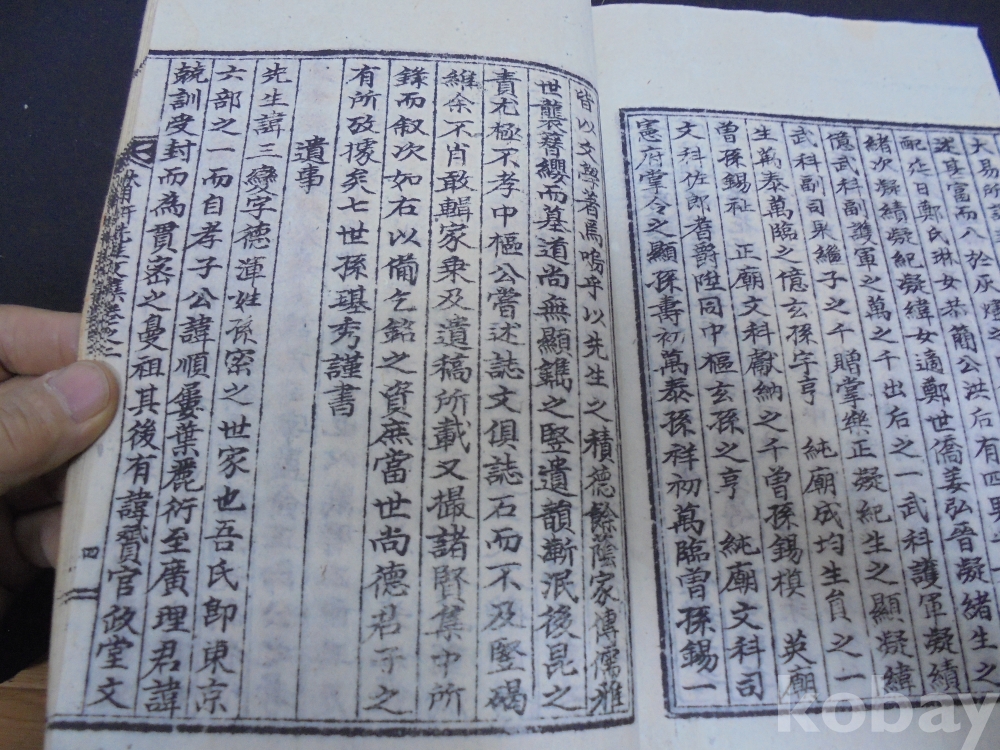 大易所
憲府掌令之顯孫壽初萬泰孫祥初萬臨曾孫錫一
文科佐郎耆爵陞同中樞玄孫之亨 純廟文科司
曾孫錫祉 正廟文科獻納之千曾孫錫模 英廟
生萬泰萬臨之億玄孫字亨 純廟成均生員之一
武科副司果繼子之千贈掌樂正凝紀生之顯凝緯
億武科副護軍之萬之千出后之一武科護軍凝績
緒次凝績凝紀凝緯女適鄭世僑姜弘晉凝緒生之
配 鄭氏琳女恭簡公洪后有四男
皆以文學著焉嗚乎以先生之積德餘蔭家傳儒雅
世襲簪纓而墓道尚無顯鐫之竪遺韻漸泯後昆之
責尤極不孝中樞公嘗述誌文俱誌石而不及竪碣
維余不肖敢輯家乘及遺稿所載又撮諸賢集中所
錄而叙次如右以備乞銘之資庶當世尚德君子之
有所攷據矣七世孫琪秀謹書
遺事
先生諱三變字德渾姓孫密之世家也吾氏卽東京
六部之一而自孝子公諱順屢葉麗衍至廣理君諱
兢訓受封而為貫密之曼祖其後有諱贇官政堂文
四
kobay